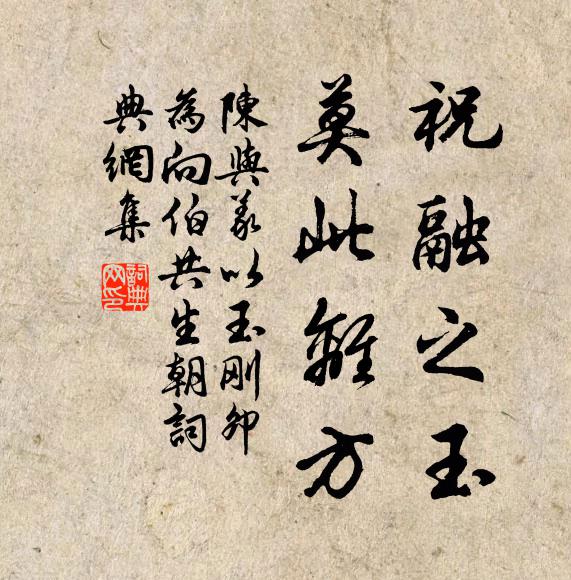 祝融之玉
莫此離方
陳與義以玉剛卯
為向伯共生朝詞
典網集
詞典
网印